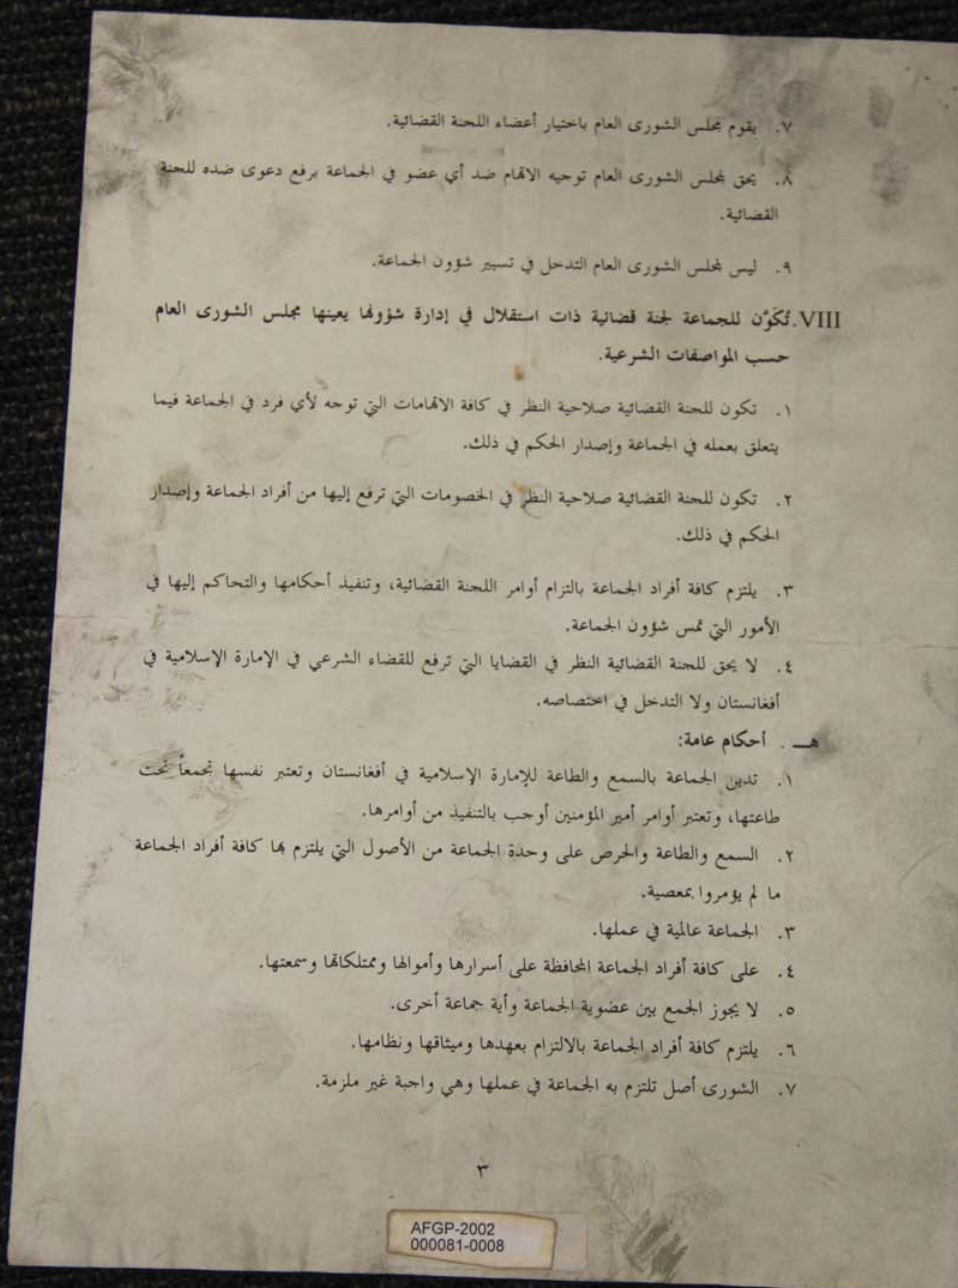 ٧. يقوم مجلس الشورى العام باختيار أعضاء اللجنة القضائية.
٨. يحق لمجلس الشورى العام توجيه الاتهام ضد أي عضو في الجماعة برفع دعوى ضده للجنة
القضائية.
٩. ليس لمجلس الشورى العام التدخل في تسيير شؤون الجماعة.
VIII. تُكَوَّن للجماعة لجنة قضائية ذات استقلال في إدارة شؤونها يعينها مجلس الشورى العام
حسب المواصفات الشرعية.
١. تكون للجنة القضائية صلاحية النظر في كافة الاتهامات التي توجه لأي فرد في الجماعة فيما
يتعلق بعمله في الجماعة وإصدار الحكم في ذلك.
٢. تكون للجنة القضائية صلاحية النظر في الخصومات التي ترفع إليها من أفراد الجماعة وإصدار
الحكم في ذلك.
٣. يلتزم كافة أفراد الجماعة بالتزام أوامر اللجنة القضائية، وتنفيذ أحكامها والتحاكم إليها في
الأمور التي تمس شؤون الجماعة.
٤. لا يحق للجنة القضائية النظر في القضايا التي ترفع للقضاء الشرعي في الإمارة الإسلامية في
أفغانستان ولا التدخل في اختصاصه.
هـ . أحكام عامة:
١. تدين الجماعة بالسمع والطاعة للإمارة الإسلامية في أفغانستان وتعتبر نفسها تجمعاً تحت
طاعتها، وتعتبر أوامر أمير المؤمنين أوجب بالتنفيذ من أوامرها.
٢. السمع والطاعة والحرص على وحدة الجماعة من الأصول التي يلتزم بها كافة أفراد الجماعة
ما لم يؤمروا بمعصية.
٣. الجماعة عالمية في عملها.
٤. على كافة أفراد الجماعة المحافظة على أسرارها وأموالها وممتلكاتها وسمعتها.
٥. لا يجوز الجمع بين عضوية الجماعة وأية جماعة أخرى.
٦. يلتزم كافة أفراد الجماعة بالالتزام بعهدها وميثاقها ونظامها.
٧. الشورى أصل تلتزم به الجماعة في عملها وهي واجبة غير ملزمة.
٣
AFGP-2002
000081-0008